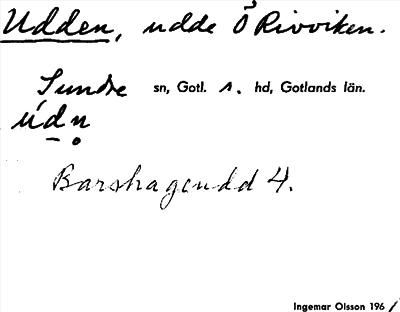 Udden, udde Ö Rivviken.
Sundre sn, Gotl. s. hd, Gotlands län.
údn̥
Barshageudd 4.
Ingemar Olsson 1961